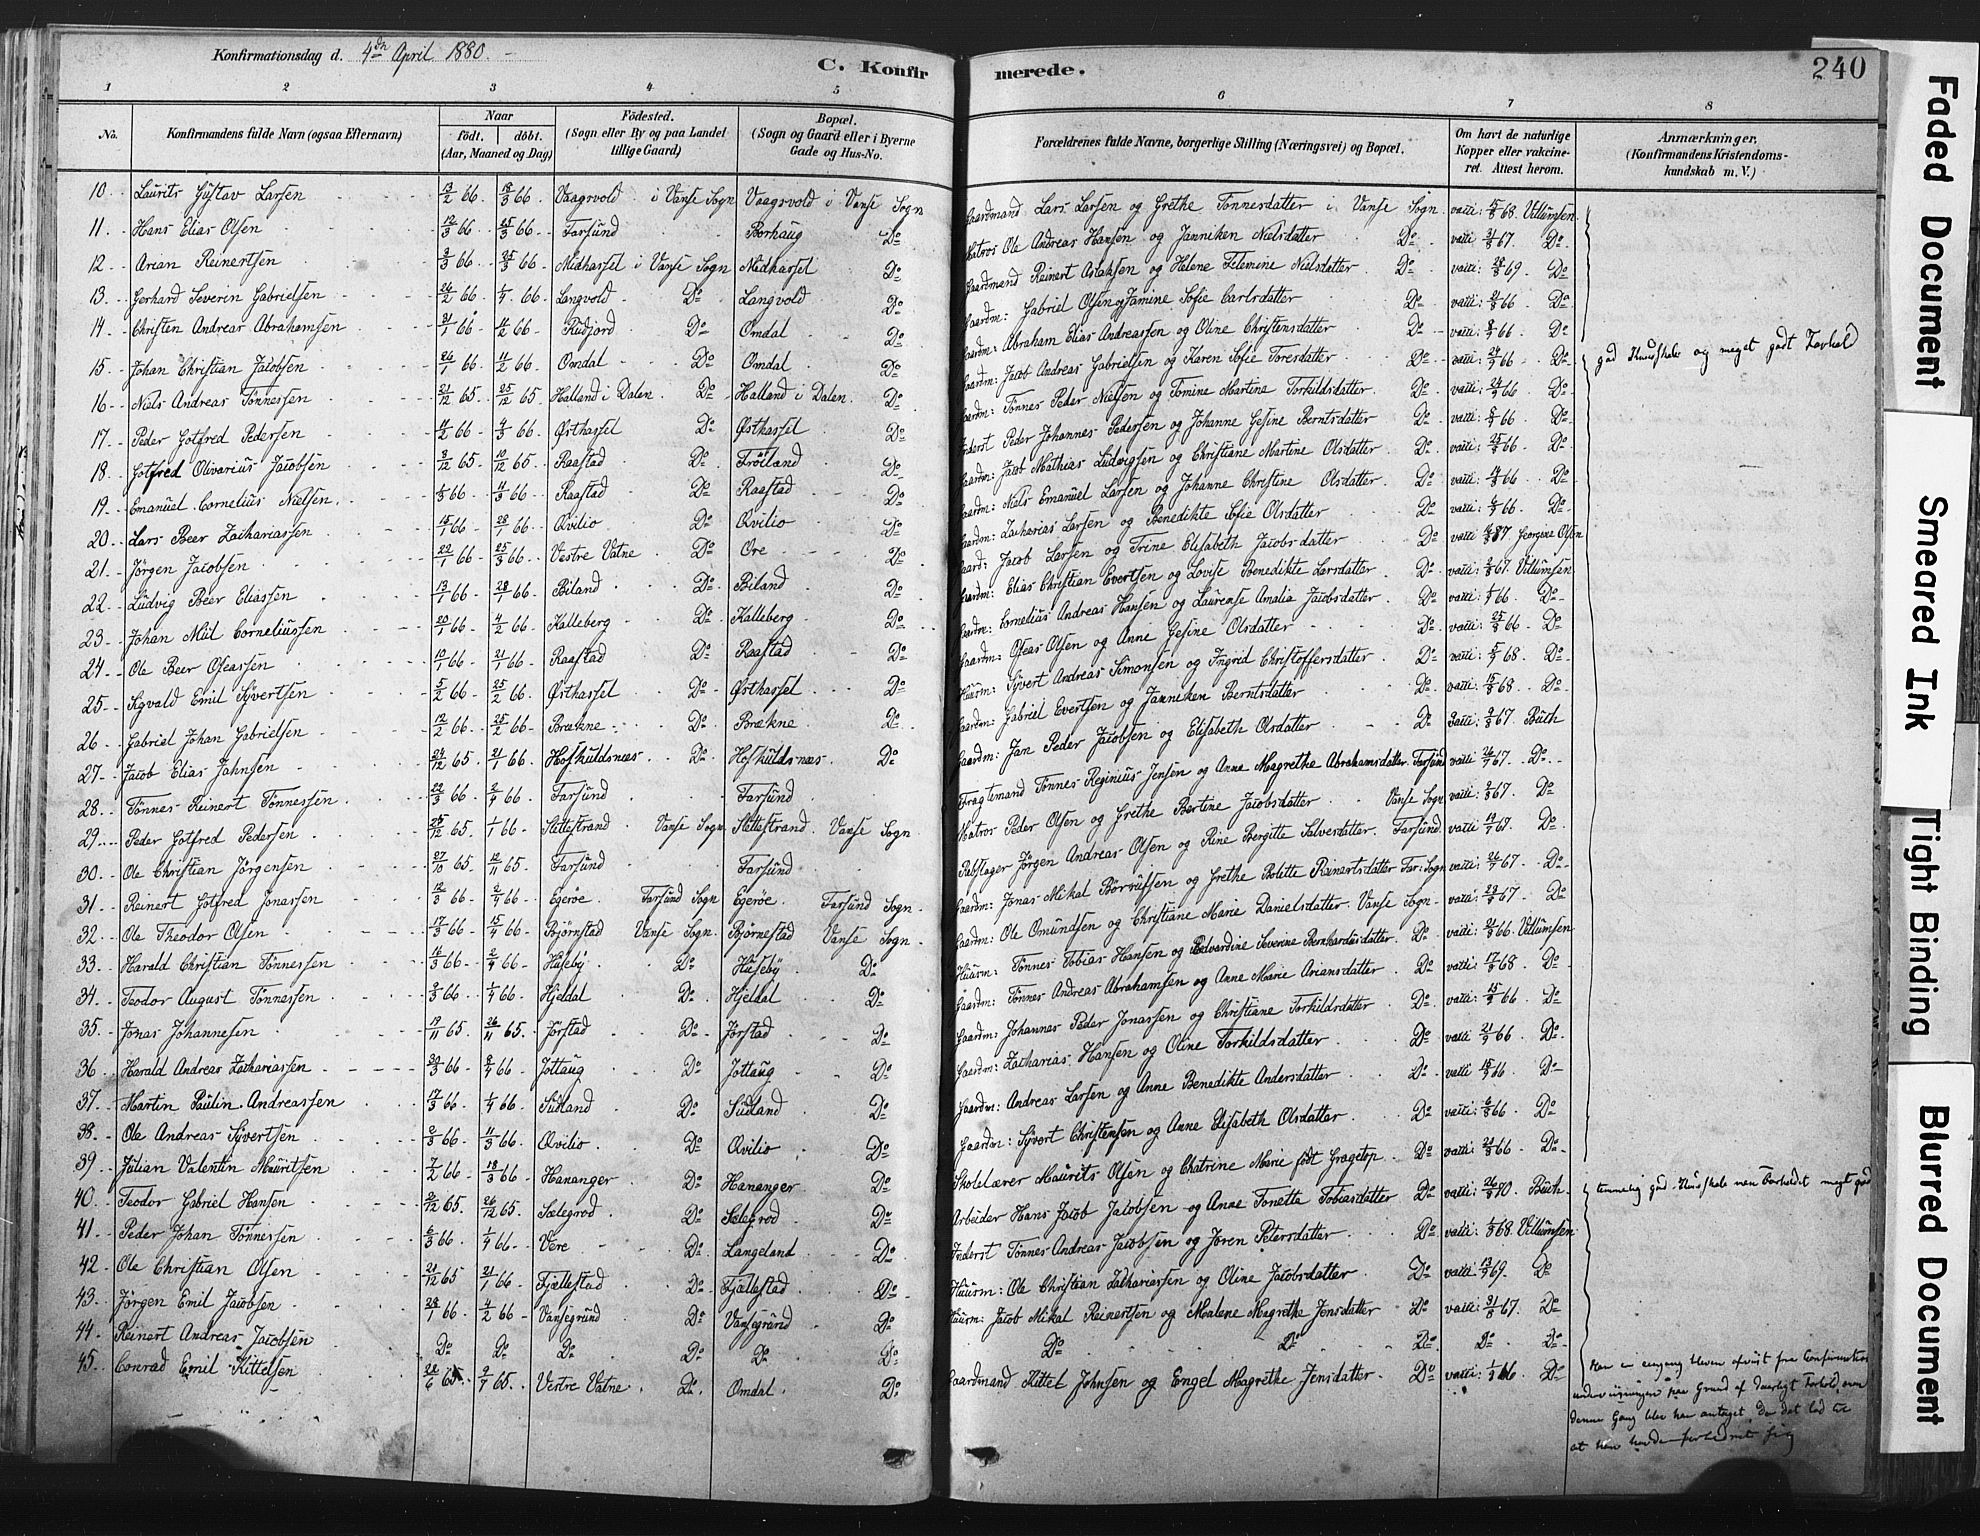 Konfirmationsdag d. 4de April 1880.
C. Konfirmerede. 240
1 2 3 4 5 6 7 8
No. Konfirmandens fulde Navn (ogsaa Efternavn) Naar født. døbt. (Aar, Maaned og Dag) Fødested. (Sogn eller By og paa Landet tillige Gaard) Bopæl. (Sogn og Gaard eller i Byerne Gade og Hus-No. Forældrenes fulde Navne, borgerlige Stilling (Næringsvei) og Bopæl. Om havt de naturlige Kopper eller vakcineret. Attest herom. Anmærkninger, (Konfirmandens Kristendomskundskab m. V.)
10 Laurits Gustav Larsen 13/2 66 18/3 66 Vaagsvold i Vanse Sogn Vaagsvold i Vanse Sogn Gaardmand Lars Larsen og Grethe Tønnesdatter i Vanse Sogn 68 Villumsen
11 Hans Elias Olsen 12/3 66 25/3 66 Farsund Borhaug Do Matros Ole Andreas Hansen og Janniken Nielsdatter Do 67. Do
12 Arian Reinertsen 3/3 66 25/3 66 Midhassel i Vanse Sogn Midhassel Do Gaardmand Reinert Aslaksen og Helene Felemine Nielsdatter Do 69 Do
13 Gerhard Severin Gabrielsen 26/2 66 1/4 66 Langvold Do Langvold Do Gaardm: Gabriel Olsen og Jamine Sofie Carlsdatter Do 66 Do
14 Christen Andreas Abrahamsen 21/1 66 11/2 66 Rudjord Do Omdal Do Gaardm: Abraham Elias Andreassen og Oline Christensdatter Do 66 Do
15 Johan Christian Jacobsen 26/1 66 11/2 66 Omdal Do Omdal Do Gaardm: Jacob Andreas Gabrielsen og Karen Sofie Toresdatter Do 66 Do god Kundskab og meget godt Forhold
16 Niels Andreas Tønnessen 21/12 65 25/12 65 Halland i Dalen Do Halland i Dalen Do Gaardm: Tønnes Peder Nielsen og Tomine Martine Torkildsdatter Do 66 Do
17 Peder Gotfred Pedersen 11/2 66 4/3 66 Østhassel Do Østhassel Do Inderst Peder Johannes Pedersen og Johanne Gesine Berntsdatter Do 66 Do
18 Gotfred Olivarius Jacobsen 3/12 65 10/12 65 Raastad Do Frøiland Do Gaardm: Jacob Mathias Ludvigsen og Christiane Martine Olsdatter Do 66 Do
19 Emanuel Cornelius Nielsen 66 11/3 66 Raastad Do Raastad Do Gaardm: Niels Emanuel Larsen og Johanne Christine Olsdatter Do 66 Do
20 Lars Beer Zachariassen 14/1 66 28/1 66 Qvilio Do Qvilio Do Gaardm: Zacharias Larsen og Benedikte Sofie Olsdatter Do 66 Do
21 Jørgen Jacobsen 22/1 66 25/3 66 Vestre Vatne Do Ore Do Gaardm: Jacob Larsen og Trine Elisabeth Jacobsdatter Do Georgine Olsen
22 Ludvig Beer Eliassen 13/1 66 28/1 66 Biland Do Biland Do Gaardm: Elias Christian Evertsen og Lovise Benedikte Larsdatter Do 67 Villumsen
23 Johan Miil Corneliussen 20/1 66 4/2 66 Kalleberg Do Kalleberg Do Gaardm: Cornelius Andreas Hansen og Laurense Amalia Jacobsdatter Do 66 Do
24 Ole Beer Oseassen 10/1 66 21/1 66 Raastad Do Raastad Do Gaardm: Oseas Olsen og Anne Gesine Olsdatter Do 66 Do
25 Kgvald Emil Syvertsen 5/2 66 25/2 66 Østhassel Do Østhassel Do Huusm: Syvert Andreas Simonsen og Ingrid Christoffersdatter Do 68 Do
26 Gabriel Johan Gabrielsen 12/2 66 25/2 66 Brækne Do Brækne Do Gaardm: Gabriel Evertsen og Janneken Berntsdatter Do 68 Do
27 Jacob Elias Jahnsen 24/12 65 21/1 66 Hoskuldsnæs Do Hoskuldsnæs Do Gaardm: Jan Peder Jacobsen og Elisabeth Olsdatter Do 67 Buch
28 Tønnes Reinert Tønnessen 22/3 66 2/4 66 Farsund Farsund Fragtemand Tønnes Reginius Jensen og Anne Magrethe Abrahamsdatter Farsund 67 Do
29 Peder Gotfred Pedersen 25/12 65 1/1 66 Slettestrand Vanse Sogn Slettestrand Vanse Sogn Matros Peder Olsen og Grethe Bertine Jacobsdatter Vanse Sogn 67 Do
30 Ole Christian Jørgensen 27/10 65 12/11 65 Farsund Farsund Rebslager Jørgen Andreas Olsen og Rine Bergitte Salvesdatter Farsund 67 Do
31 Reinert Gotfred Jonassen 12/3 66 2/4 66 Egerøe Farsund Sogn Egerøe Farsund Sogn Gaardm: Jonas Mikal Børrufsen og Grethe Bolette Reinertsdatter Far: Sogn 67 Do
32 Ole Theodor Olsen 17/3 66 15/4 66 Bjørnstad Vanse Sogn Bjørnestad Vanse Sogn Gaardm: Ole Omundsen og Christiane Marie Danielsdatter Vanse Sogn 67 Do
33 Harald Christian Tønnessen 16/3 66 2/4 66 Huseby Do Huseby Do Huusm: Tønnes Tobias Hansen og Edvardine Severine Bernhardusdatter Do 66 Villumsen
34 Teodor August Tønnessen 3/3 66 1/4 66 Hjeldal Do Hjeldal Do Gaardm: Tønnes Andreas Abrahamsen og Anne Marie Ariansdatter Do 68 Do
35 Jonas Johannesen 19/11 65 26/11 65 Jørstad Do Jørstad Do Gaardm: Johannes Peder Jonassen og Christiane Torkildsdatter Do 66 Do
36 Harald Andreas Zachariassen 30/3 66 8/4 66 Jottaug Do Jottaug Do Gaardm: Zacharias Hansen og Oline Torkildsdatter Do 66 Do
37 Martin Paulin Andreassen 12/3 66 1/4 66 Sudland Do Sudland Do Gaardm: Andreas Larsen og Anne Benedikte Andersdatter Do 66 Do
38 Ole Andreas Syvertsen 2/3 66 11/3 66 Qvilio Do Qvilio Do Gaardm: Syvert Christensen og Anne Elisabeth Olsdatter Do 66 Do
39 Julian Valentin Mauritsen 7/2 66 18/3 66 Hananger Do Hananger Do Skolelærer Maurits Olsen og Chatrine Marie født Grogetop Do 66 Do
40 Teodor Gabriel Hansen 2/12 65 26/12 65 Sælegrod Do Sælegrod Do Arbeider Hans Jacob Jacobsen og Anne Tonette Tobiasdatter Do 70 Buch temmelig god Kundskab men Forholdet meget god
41 Peder Johan Tønnessen 6/3 66 1/4 66 Vere Do Langeland Do Inderst Tønnes Andreas Jacobsen og Joren Petersdatter Do 68 Villumsen
42 Ole Christian Olsen 21/12 65 21/1 66 Fjellestad Do Fjellestad Do Huusm: Ole Christian Zachariassen og Oline Jacobsdatter Do 69 Do
43 Jørgen Emil Jacobsen 28/1 66 4/2 66 Vansegrund Do Vansegrund Do Huusm: Jacob Mikal Reinertsen og Malene Magrethe Jensdatter Do 67 Do
44 Reinert Andreas Jacobsen Do Do Do Do Do Do Do Do Do Do Do
45 Conrad Emil Kittelsen 22/6 65 9/7 65 Vestre Vatne Do Omdal Do Gaardmand Kittel Johnsen og Engel Magrethe Jensdatter Do 66 Do
Han er engang bleven afviist fra Confirmations
undervisningen paa Grund af daarligt Forhold, men
denne Gang blev han antaget, da det lod til
at han havde forbedret sig
Faded Document
Smeared Ink
Tight Binding
Blurred Document